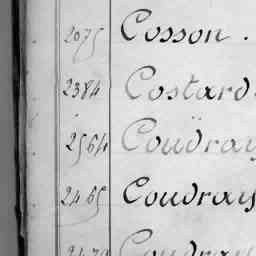 2075 Cosson.
2384 Costard
2564 Coudray
2465 Coudray
Coudray